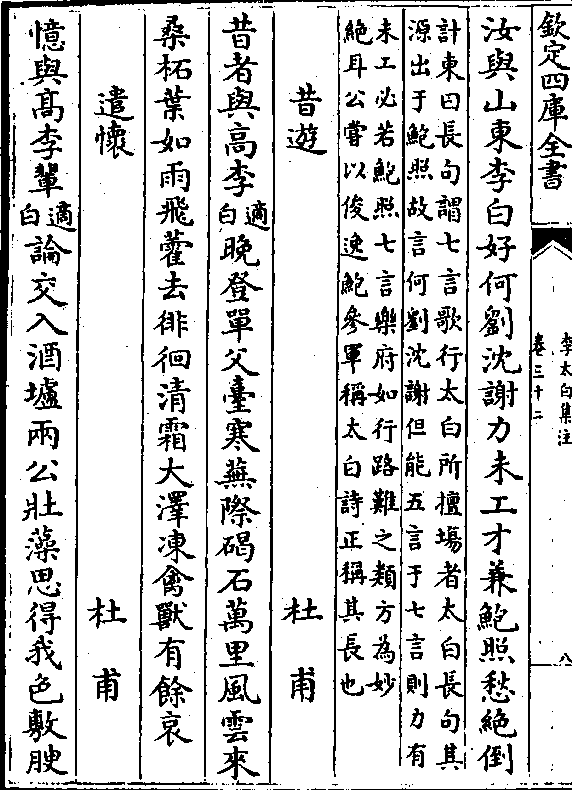 欽定四庫全書
李太白集注
卷三十二
八
汝與山東李白好何劉沈謝力未工才兼鮑照愁絶倒
計東曰長句謂七言歌行太白所擅塲者太白長句其
源出于鮑照故言何劉沈謝但能五言于七言則力有
未工必若鮑照七言樂府如行路難之類方為妙
絶耳公嘗以俊逸鮑參軍稱太白詩正稱其長也
昔遊　杜甫
昔者與高李適白晚登單父臺寒蕪際碣石萬里風雲來
桑柘葉如雨飛藿去徘徊清霜大澤凍禽獸有餘哀
遣懷　杜甫
憶與高李輩適白論交入酒壚兩公壯藻思得我色敷腴